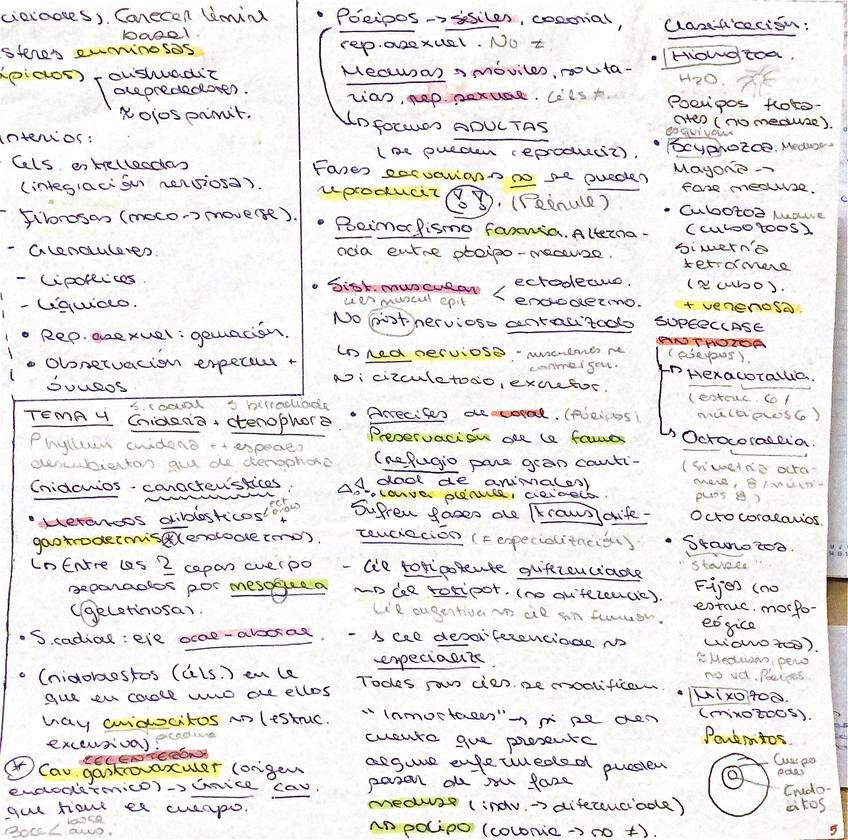 Carecer lámina
basal.
euminosas
distinguir
depredadores.
≈ ojos primit.
Interior:
Cels. estrelladas
(integración nerviosa).
- Fibrosas (moco → moverse).
- Glandulares.
- Lipofílicas.
- Líquido.
• Rep. asexual: gemación.
• Observación esperm +
óvulos
TEMA 4 S. radial S birradiada
Cnidaria + ctenophora.
Phyllum cnidaria ++ especies
descubiertas que de ctenophora
Cnidarios - características:
• Metazoos diblásticos ect endo +
gastrodermis (endodermo).
↳ Entre las 2 capas cuerpo
separados por mesoglea
(gelatinosa).
• S. radial: eje oral-aboral.
• Cnidoblastos (céls.) en la
que en cada uno de ellos
hay cnidocitos (estruc.
exclusiva).
CELENTERÓN
Cav. gastrovascular (origen
endodérmico) → única cav.
que tiene el cuerpo.
Boca < boca ano.
• Pólipos → sésiles, colonial,
rep. asexual. No ≠
Medusas → móviles, solita-
rias, rep. sexual. céls ≠.
↳ formas ADULTAS
(se pueden reproducir).
Fases larvarias → no se pueden
reproducir. (Plánula)
• Polimorfismo Alterna-
ncia entre pólipo-medusa.
• Sist. muscular < ectodermo.
endodermo.
céls muscul epit
No sist. nervioso centralizado
↳ red nerviosa
Ni circulatorio, excretor.
• Arrecifes de coral. (Pólipos)
Preservación de la fauna
(refugio para gran canti-
dad de animales)
larva plánula, ciliada.
Sufren fases de transdife-
renciación (≠ especialización).
- Cél totipotente diferenciada
cél totipot. (no diferencia).
Cél digestiva cél sin función.
- 1 cel desdiferenciada
especializa.
Todas sus céls. se modifican.
"Inmortales" → si se dan
cuenta que presenta
alguna enfermedad pueden
pasar de su fase
medusa (indv. → diferenciada)
pólipo (colonia → no ≠).
Clasificación:
• Hidrozoa.
H2O.
Pólipos flota-
ntes (no medusa).
• Scyphozoa. Medusa
Mayoría →
fase medusa.
• Cubozoa
(cubozoos)
Simetría
tetrámera
(≈ cubo).
+ venenosa.
SUPERCLASE
ANTHOZOA
(pólipos).
↳ Hexacorallia.
(estruc. 6/
múltiplos 6)
↳ Octocorallia.
(Simetría octa-
mera, 8/múlti-
plos 8)
Octocoralarios.
• Staurozoa.
"stable"
Fijos (no
estruc. morfo-
lógica
hidrozoa).
≈ Medusas, pero
no vd. Pólipos.
• Mixozoa.
(mixozoos).
Parásitos
Cuerpo
Cnido-
citos
5